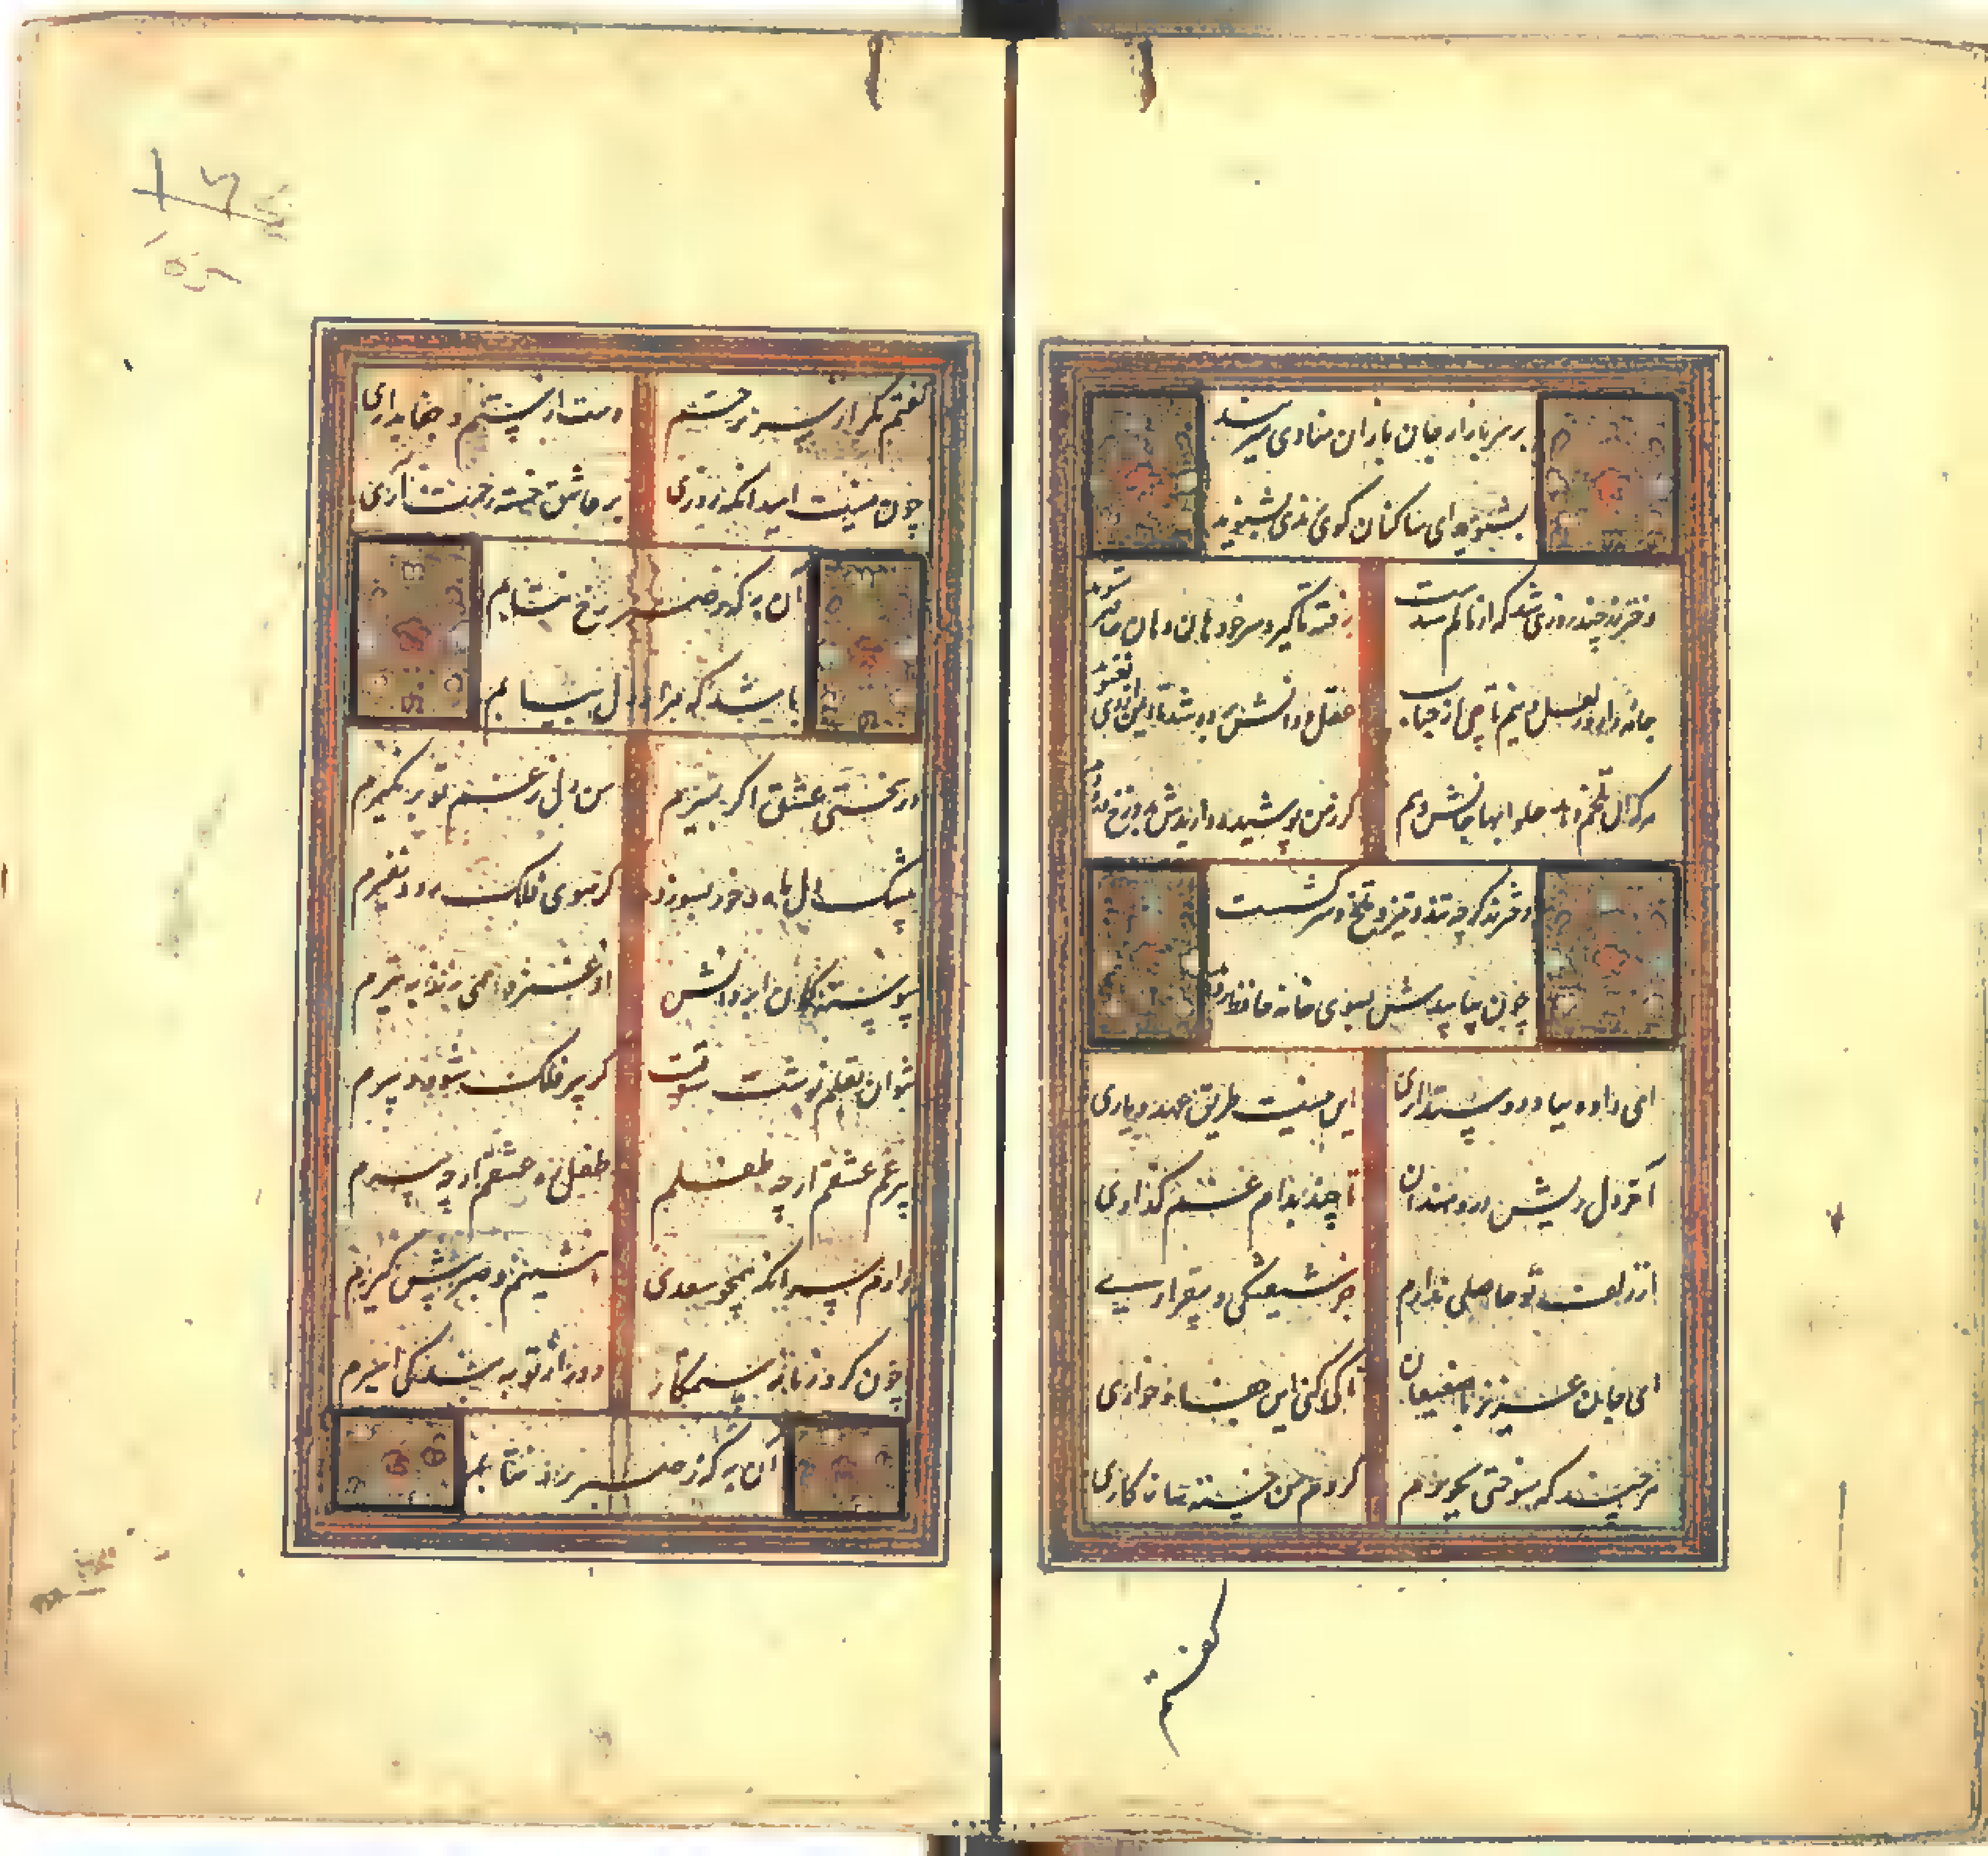 بر سر بازار جانبازان منادی میزنند
بشنوید ای ساکنان کوی رندی بشنوید
دختر رز چند روزی شد که از ما گم شدست
رفت تا گیرد سر خود هان و هان حاضر شوید
جامه دارد ز لعل و نیم تاجی از حباب
عقل و دانش برد و شد تا ایمن از وی نغنوید
هرکه آن تلخم دهد حلوا بها جانش دهم
گر بود پوشیده و
دختر رز گرچه تند و تیز و تلخ و سرکشست
چون بیابیدش بسوی خانه حافظ برید
ای داده بباد دوستداری
این نیست طریق عهد و یاری
آخر دل ریش دردمندان
تا چند بدام غم گذاری
از زلف تو حاصلی ندارم
جز شیفتگی و بیقراری
ای جان عزیز بر ضعیفان
تا کی کنی این جفا و خواری
هرچند که سوختی بجورم
کردم من خسته سازگاری
گفتم
گفتم مگر از سر ترحم
دست از ستم و جفا بداری
چون نیست امید آنکه روزی
بر عاشق خسته رحمت آری
آن به که ز صبر رخ نتابم
باشد که مراد دل بیابم
در سختی عشق اگر بمیرم
من دل ز غم تو برنگیرم
پیکان
گر سوی فلک رود نفیرم
پیوسته کمان ابروانش
از غمزه همی زند به تیرم
نتوان بقلم نوشت شوقت
گر پیر فلک شود دبیرم
پیر غم عشقم ارچه طفلم
طفل ره عشقم ارچه پیرم
دارم سر آنکه همچو سعدی
بنشینم و صبر پیش گیرم
چون کرد زمانه ستمکار
دور از تو به بند غم اسیرم
آن به که ز صبر رخ نتابم